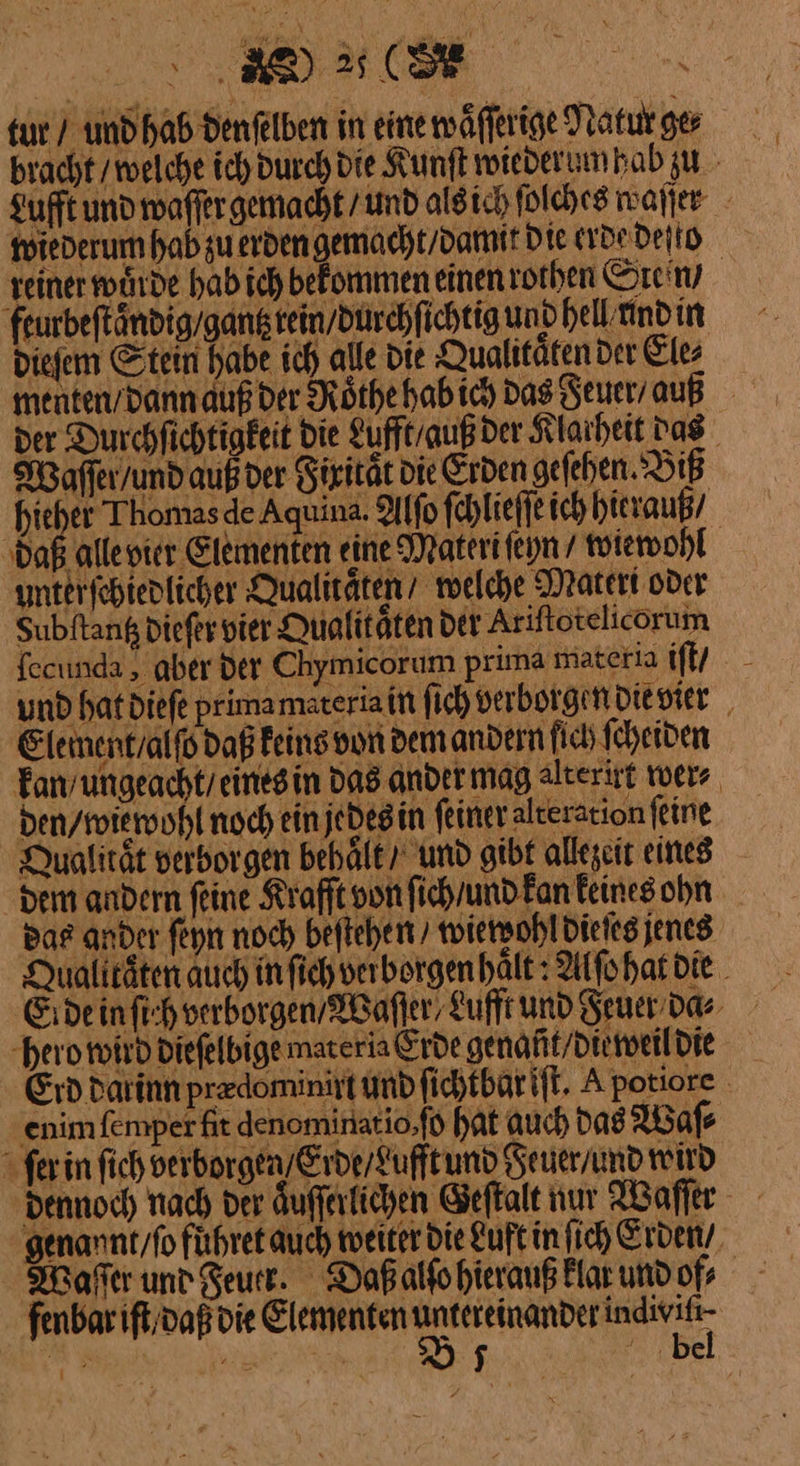 25
tur / und hab denſelben in eine waͤſſerige Natur ge⸗
bracht / welche ich durch die Kunſt wiederum hab zu
Lufft und waſſer gemacht / und als ich ſolches waſſer
wiederum hab zu erden gemacht / damit die erde deſto
reiner wuͤrde hab ich bekommen einen rothen Stein /
feurbeſtaͤndig / gantz rein / durchſichtig und hell / und in
dieſem Stein habe ich alle die Qualitaͤten der Ele⸗
menten / dann auß der Roͤthe hab ich das Feuer / auß
der Durchſichtigkeit die Lufft / auß der Klarheit das
Waſſer / und auß der Fixitaͤt die Erden geſehen. Biß
hieher Thomas de Aquina. Alſo ſchlieſſe ich hierauß /
daß alle vier Elementen eine Materi ſeyn / wiewohl
unterſchiedlicher Qualitaͤten / welche Materi oder
Subſtantz dieſer vier Qualitaͤten der Ariſtotelicorum
ſecunda, aber der Chymicorum prima materia iſt /
und hat dieſe prima materia in ſich verborgen die vier
Element / alſo daß keins von dem andern ſich ſcheiden
kan / ungeacht / eines in das ander mag alterirt wer⸗
den / wiewohl noch ein jedes in ſeiner alteration ſeine
Qualitaͤt verborgen behaͤlt / und gibt allezeit eines
dem andern ſeine Krafft von ſich / und kan keines ohn
das ander ſeyn noch beſtehen / wiewohl dieſes jenes
Qualitaͤten auch in ſich verborgen haͤlt: Alſo hat die
Erde in ſich verborgen / Waſſer / Lufft und Feuer / da⸗
hero wird dieſelbige materia Erde genañt / dieweil die
Erd darinn prædominirt und ſichtbar iſt. A potiore
enim ſemper fit denominatio, ſo hat auch das Waſ⸗
ſer in ſich verborgen / Erde / Lufft und Feuer / und wird
dennoch nach der aͤuſſerlichen Geſtalt nur Waſſer
genannt / ſo fuͤhret auch weiter die Luft in ſich Erden /
Waſſer und Feuer. Daß alſo hierauß klar und of⸗
fenbar iſt / daß die Elementen untereinander indiviſi-
B 5 bel